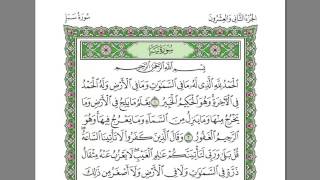 الجزء الثاني والعشرون
سورة سبإ
سورة سبإ
بسم الله الرحمن الرحيم
الحمد لله الذي له ما في السموات وما في الأرض وله الحمد
في الآخرة وهو الحكيم الخبير ١ يعلم ما يلج في الأرض وما
يخرج منها وما ينزل من السماء وما يعرج فيها وهو
الرحيم الغفور ٢ وقال الذين كفروا لا تأتينا الساعة
قل بلى وربي لتأتينكم علم الغيب لا يعزب عنه مثقال
ذرة في السموات ولا في الأرض ولا أصغر من ذلك